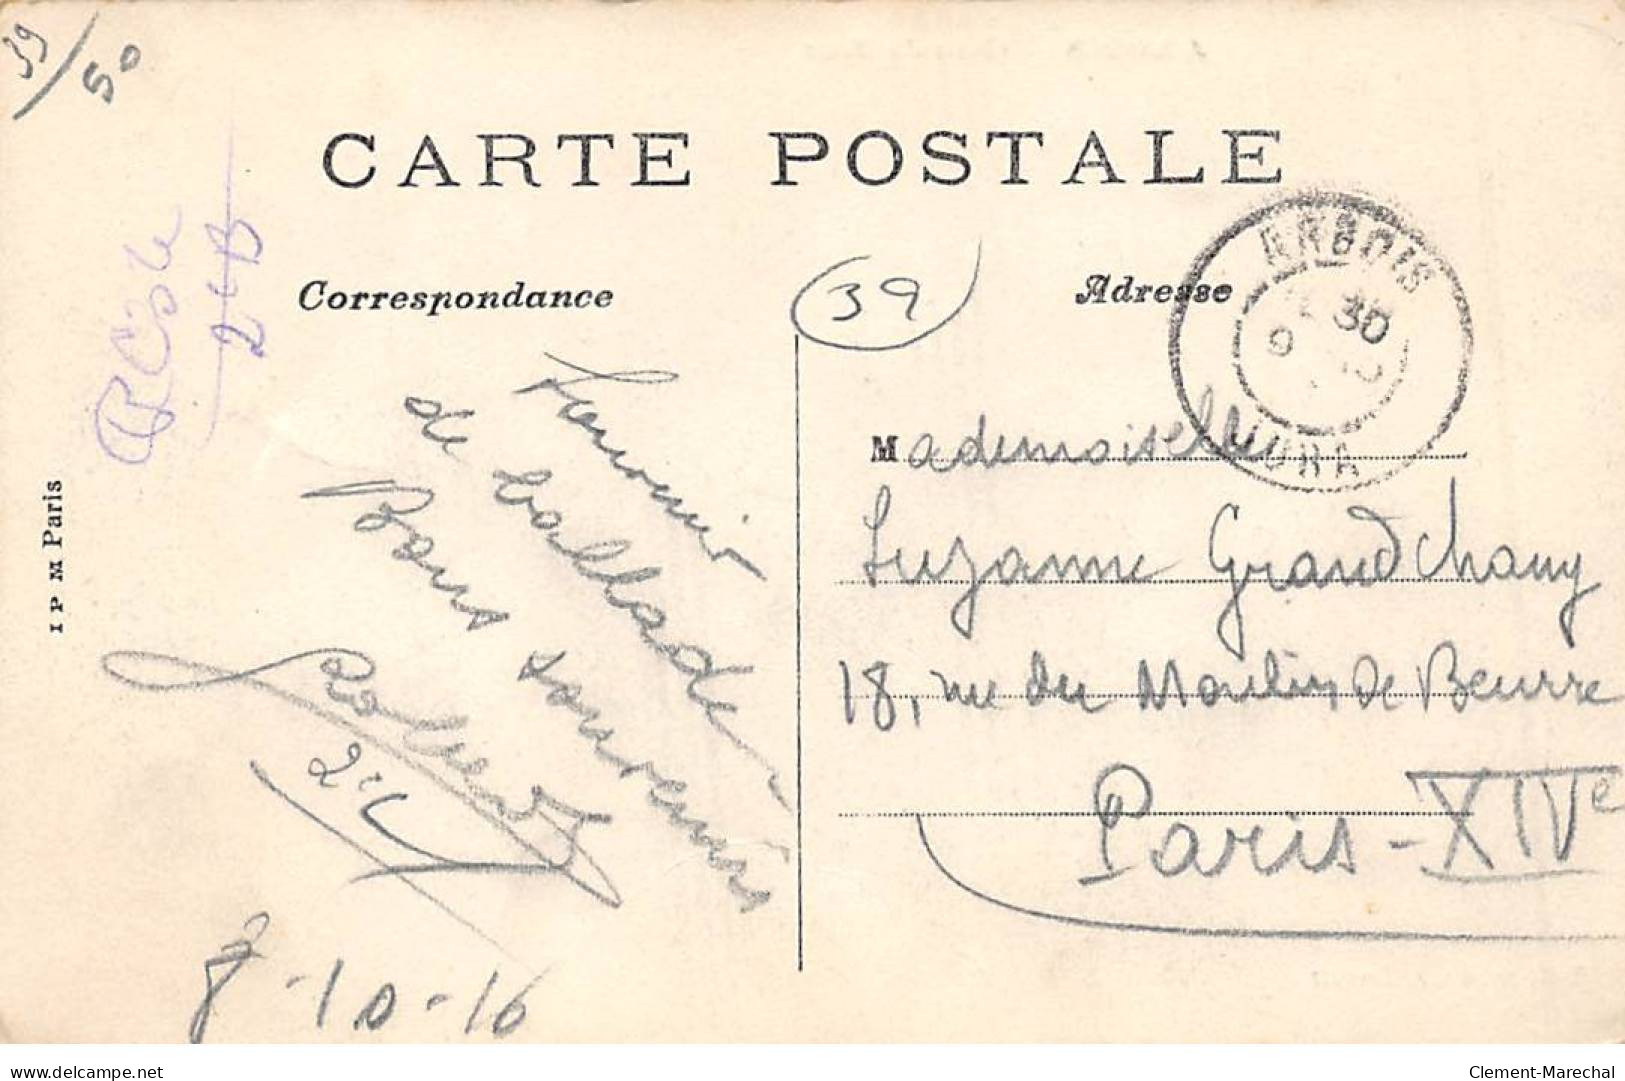 39/50
CARTE POSTALE
Correspondance
39
Adresse
ARBOIS
30
JURA
Souvenir
de ballade
Bons souvenirs
8-10-16
Mademoiselle
Suzanne Grandchamp
18, rue du Moulin de Beurre
Paris-XIVe
I P M Paris
delcampe.net
Clement-Marechal